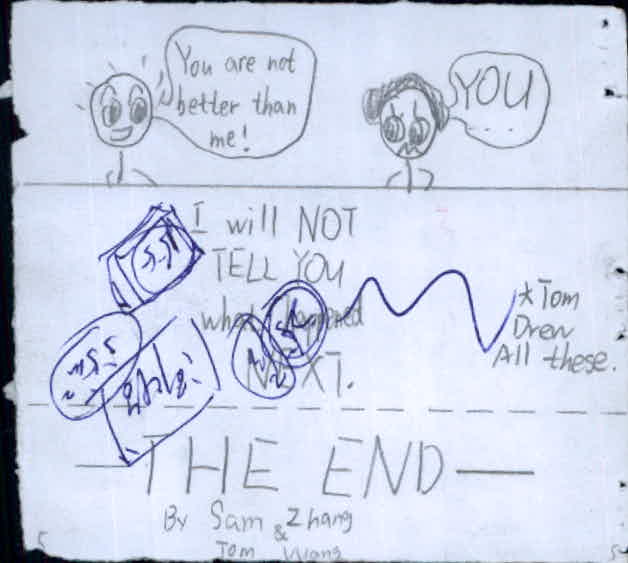 You are not
better than
me!
YOU
I will NOT
TELL YOU
what happened
NEXT.
*Tom
Drew
All these.
THE END
By Sam Zhang
&
Tom Wang
5
5